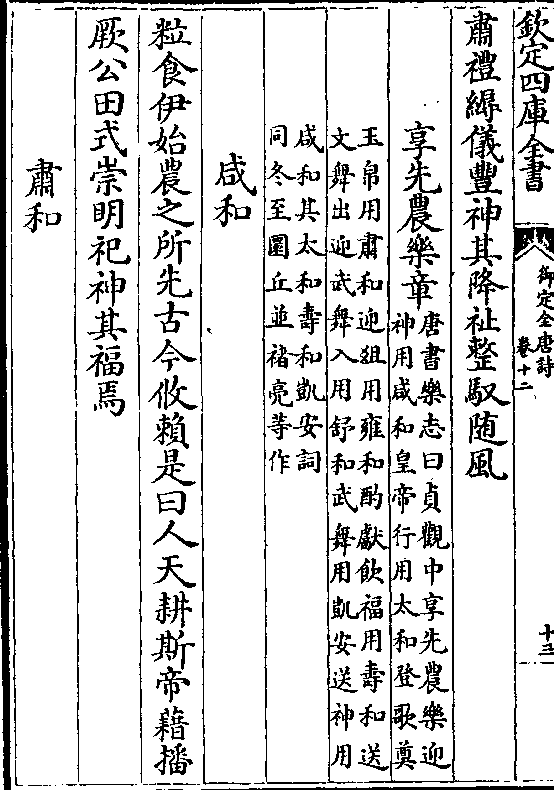 欽定四庫全書
御定全唐詩
卷十二
十三
肅禮縟儀豐神其降祉整馭随風
享先農樂章
唐書樂志曰貞觀中享先農樂迎
神用咸和皇帝行用太和登歌奠
玉帛用肅和迎組用雍和酌獻飲福用壽和送
文舞出迎武舞入用舒和武舞用凱安送神用
咸和其太和壽和凱安詞
同冬至圜丘並褚亮等作
咸和
粒食伊始農之所先古今攸賴是曰人天耕斯帝藉播
厥公田式崇明祀神其福焉
肅和